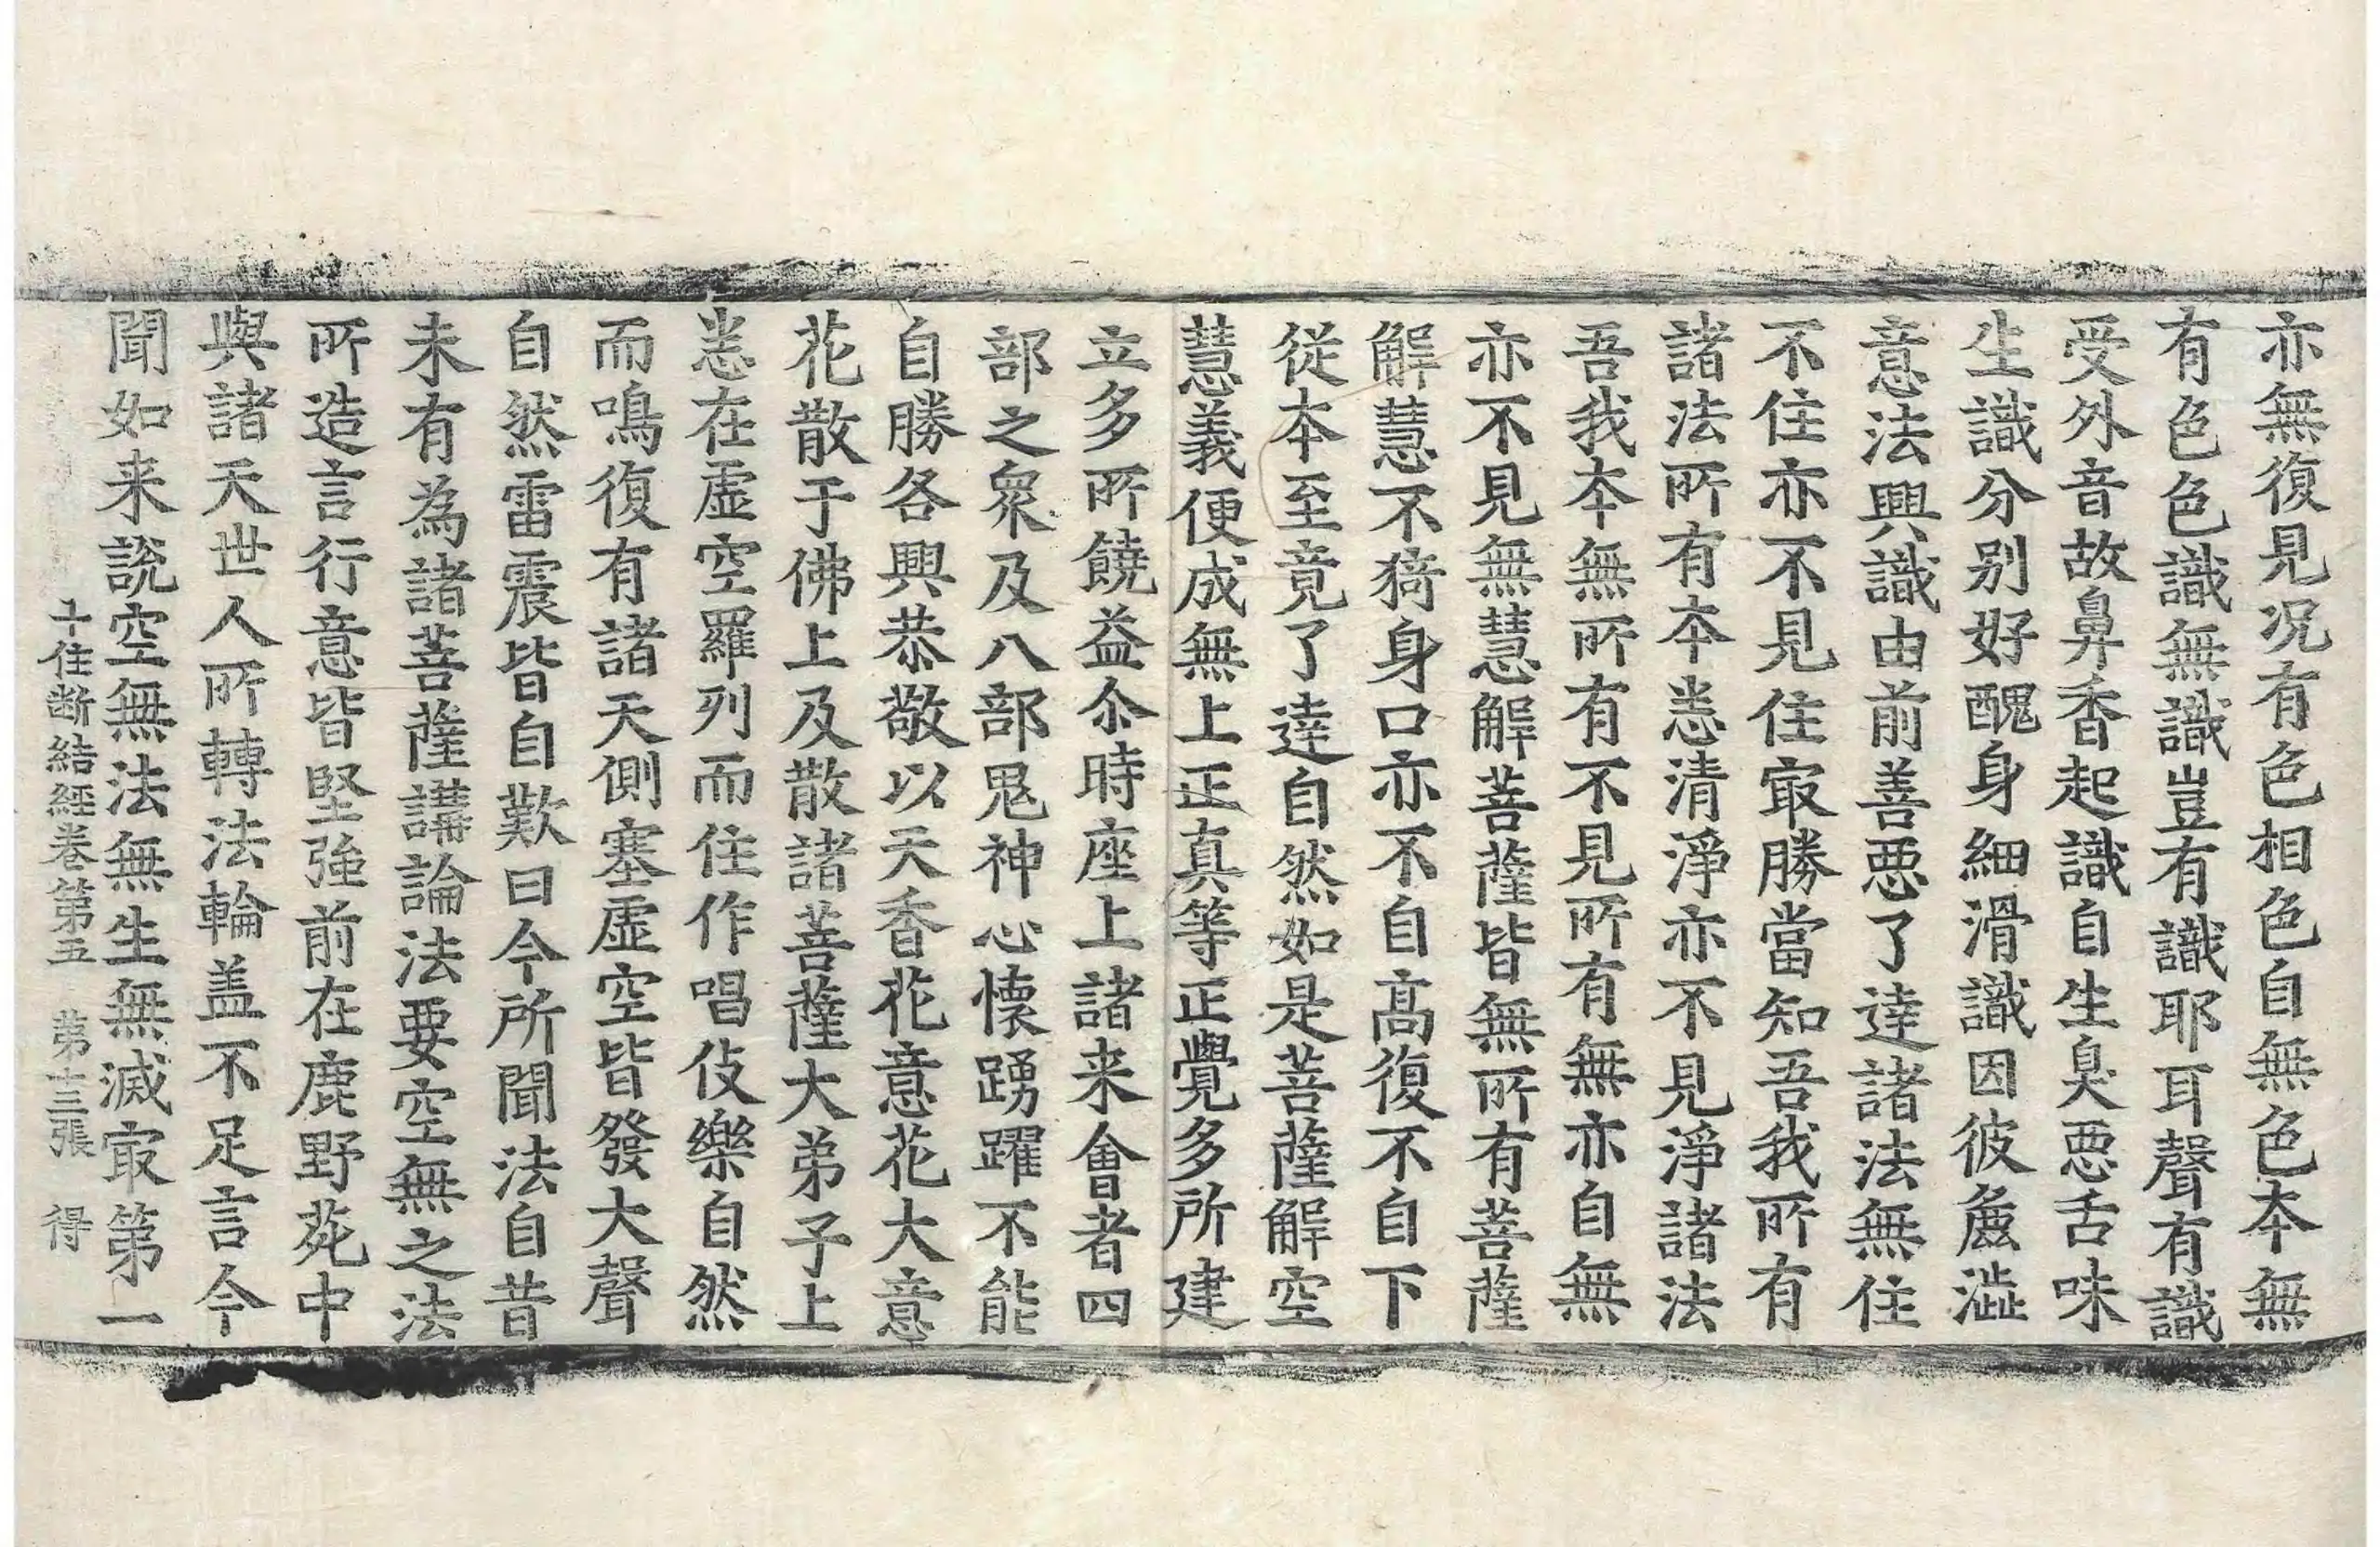 亦無復見况有色相色自無色本無
有色色識無識豈有識耶耳聲有識
受外音故鼻香起識自生臭惡舌味
生識分别好醜身細滑識因彼麁澁
意法興識由前善惡了達諸法無住
不住亦不見住㝡勝當知吾我所有
諸法所有本悉清淨亦不見淨諸法
吾我本無所有不見所有無亦自無
亦不見無慧解菩薩皆無所有菩薩
解慧不猗身口亦不自髙復不自下
從本至竟了達自然如是菩薩解空
慧義便成無上正真等正覺多所建
立多所饒益尒時座上諸来會者四
部之衆及八部鬼神心懷踴躍不能
自勝各興恭敬以天香花意花大意
花散于佛上及散諸菩薩大弟子上
悉在虚空羅列而住作唱伎樂自然
而鳴復有諸天側塞虚空皆發大聲
自然雷震皆自歎曰今所聞法自昔
未有為諸菩薩講論法要空無之法
所造言行意皆堅強前在鹿野苑中
與諸天世人所轉法輪盖不足言今
聞如来說空無法無生無滅㝡第一
十住断結經卷第五 第十三張 得